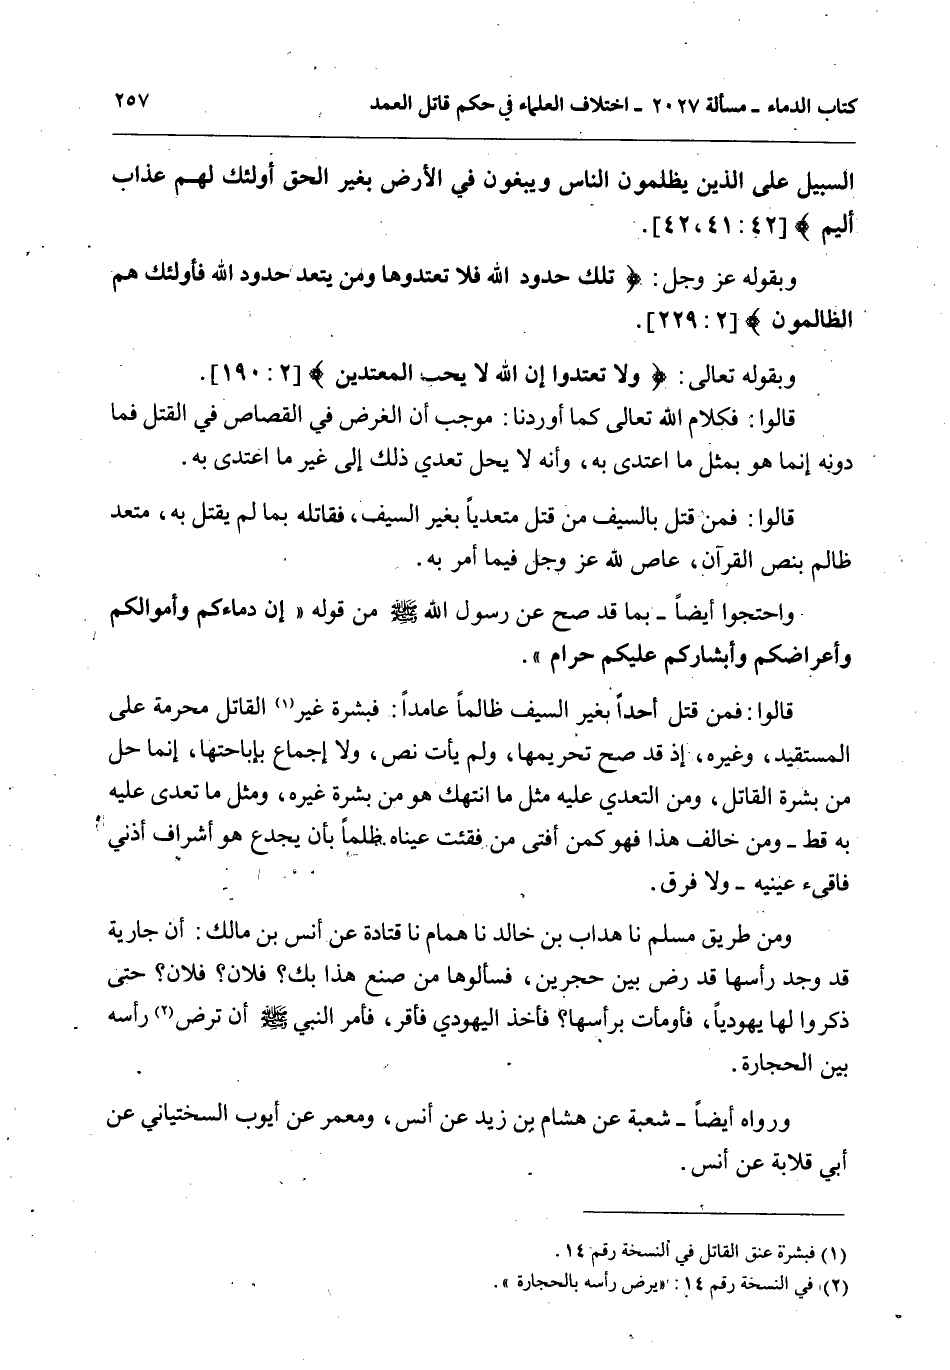 كتاب الدماء ـ مسألة ٢٠٢٧ ـ اختلاف العلماء في حكم قاتل العمد ٢٥٧
السبيل على الذين يظلمون الناس ويبغون في الأرض بغير الحق أولئك لهم عذاب
أليم ﴾ [٤٢ : ٤١، ٤٢].
وبقوله عز وجل: ﴿ تلك حدود الله فلا تعتدوها ومن يتعد حدود الله فأولئك هم
الظالمون ﴾ [٢ : ٢٢٩].
وبقوله تعالى: ﴿ ولا تعتدوا إن الله لا يحب المعتدين ﴾ [٢ : ١٩٠].
قالوا: فكلام الله تعالى كما أوردنا: موجب أن الغرض في القصاص في القتل فما
دونه إنما هو بمثل ما اعتدى به، وأنه لا يحل تعدي ذلك إلى غير ما اعتدى به.
قالوا: فمن قتل بالسيف من قتل متعدياً بغير السيف، فقاتله بما لم يقتل به، متعد
ظالم بنص القرآن، عاص لله عز وجل فيما أمر به.
واحتجوا أيضاً ـ بما قد صح عن رسول الله ﷺ من قوله « إن دماءكم وأموالكم
وأعراضكم وأبشاركم عليكم حرام ».
قالوا: فمن قتل أحداً بغير السيف ظالماً عامداً: فبشرة غير(١) القاتل محرمة على
المستقيد، وغيره، إذ قد صح تحريمها، ولم يأت نص، ولا إجماع بإباحتها، إنما حل
من بشرة القاتل، ومن التعدي عليه مثل ما انتهك هو من بشرة غيره، ومثل ما تعدى عليه
به قط ـ ومن خالف هذا فهو كمن أفتى من فقئت عيناه ظلماً بأن يجدع هو أشراف أذني
فاقىء عينيه ـ ولا فرق.
ومن طريق مسلم نا هداب بن خالد نا همام نا قتادة عن أنس بن مالك: أن جارية
قد وجد رأسها قد رض بين حجرين، فسألوها من صنع هذا بك؟ فلان؟ فلان؟ حتى
ذكروا لها يهودياً، فأومأت برأسها؟ فأخذ اليهودي فأقر، فأمر النبي ﷺ أن ترض(٢) رأسه
بين الحجارة.
ورواه أيضاً ـ شعبة عن هشام بن زيد عن أنس، ومعمر عن أيوب السختياني عن
أبي قلابة عن أنس.
(١) فبشرة عنق القاتل في النسخة رقم ١٤ .
(٢) في النسخة رقم ١٤ : «يرض رأسه بالحجارة ».